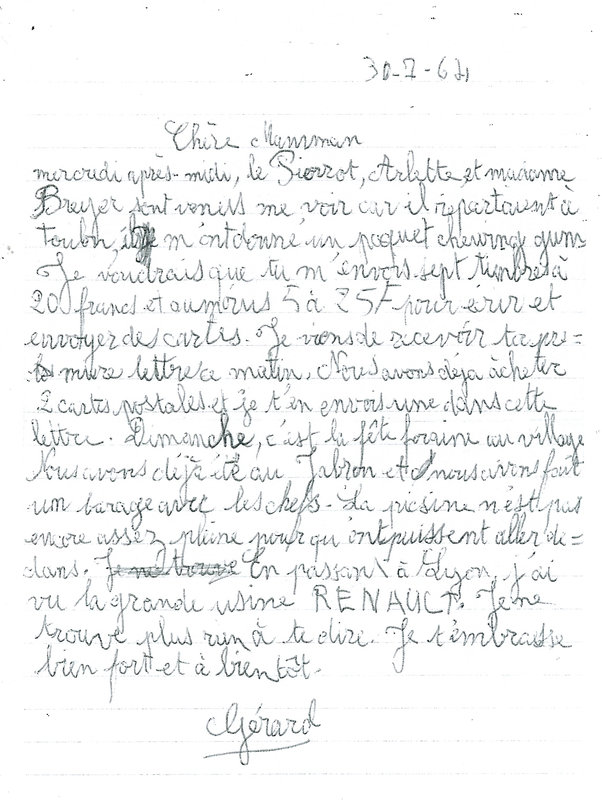 30-7-64
Chère Mamman
mercredi après-midi, le Pierrot, Arlette et madame
Breyer sont venus me voir car il repartaient à
Toulon, m'ont donné un paquet chewing gum
Je voudrais que tu m'envois sept timbres à
20 francs et au moins 5 à 25F pour écrir et
envoyer des cartes. Je viens de recevoir ta pre=
mière lettre ce matin. Nous avons déja acheter
2 cartes postales et je t'en envois une dans cette
lettre. Dimanche, c'est la fête foraine au village
Nous avons déjà été au Jabron et nous avons fait
un barage avec les chefs. La picsine n'est pas
encore assez pleine pour qu'ont puissent aller de=
dans. Je ne trouve En passant à Lyon, j'ai
vu la grande usine RENAULT. Je ne
trouve plus rien à te dire. Je t'embrasse
bien fort et à bientôt.
Gérard